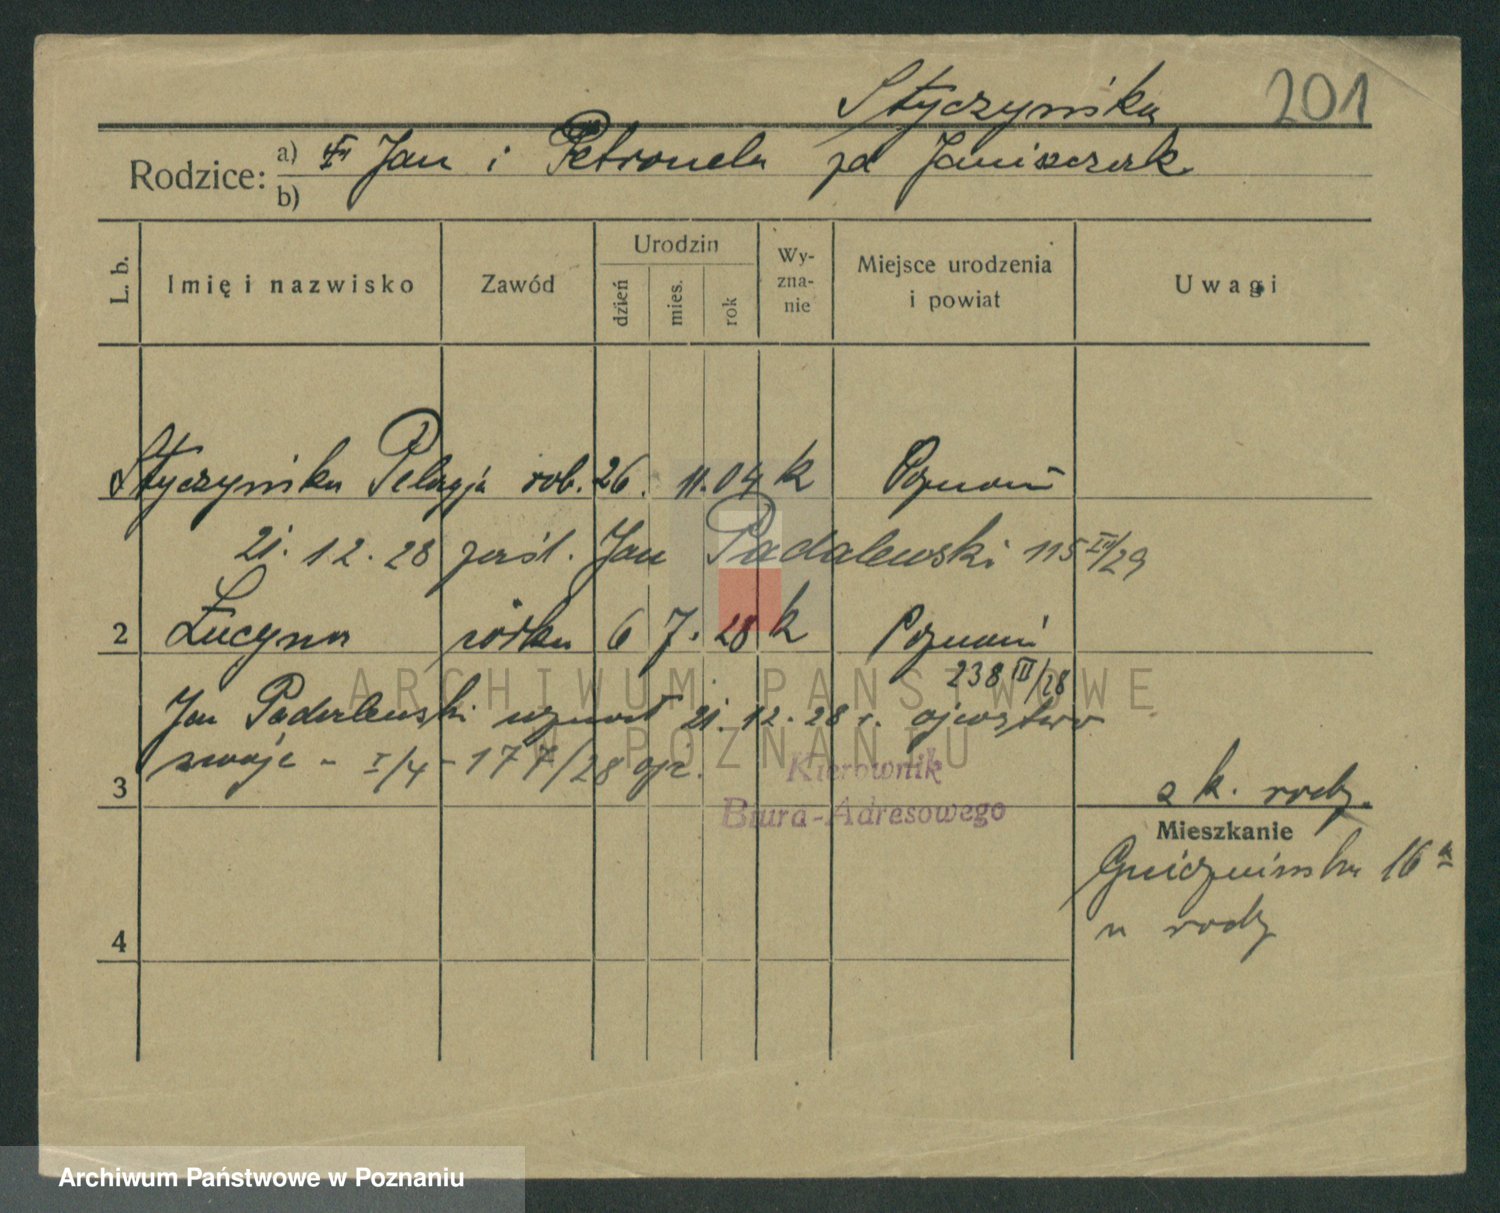 Styczyńska 201
Rodzice: a) Jan i Petronela zd Janiszczak
b)
L. b. Imię i nazwisko Zawód Urodzin dzień mies. rok Wyznanie Miejsce urodzenia i powiat Uwagi
Styczyńska Pelagja rob. 26. 11. 04 k Poznań
21. 12. 28 zaśl. Jan Padalewski 115 III/29
2 Łucyna córka 6 7. 28 k Poznań
238 III/28
Jan Padalewski uznał 21. 12. 28 r. ojcostwo
swoje - I/4 - 177/28 opr.
Kierownik
3 k. rodz.
Biura-Adresowego
Mieszkanie
Gnieźnińska 16 a
u rodz
4
ARCHIWUM PAŃSTWOWE
W POZNANIU
Archiwum Państwowe w Poznaniu